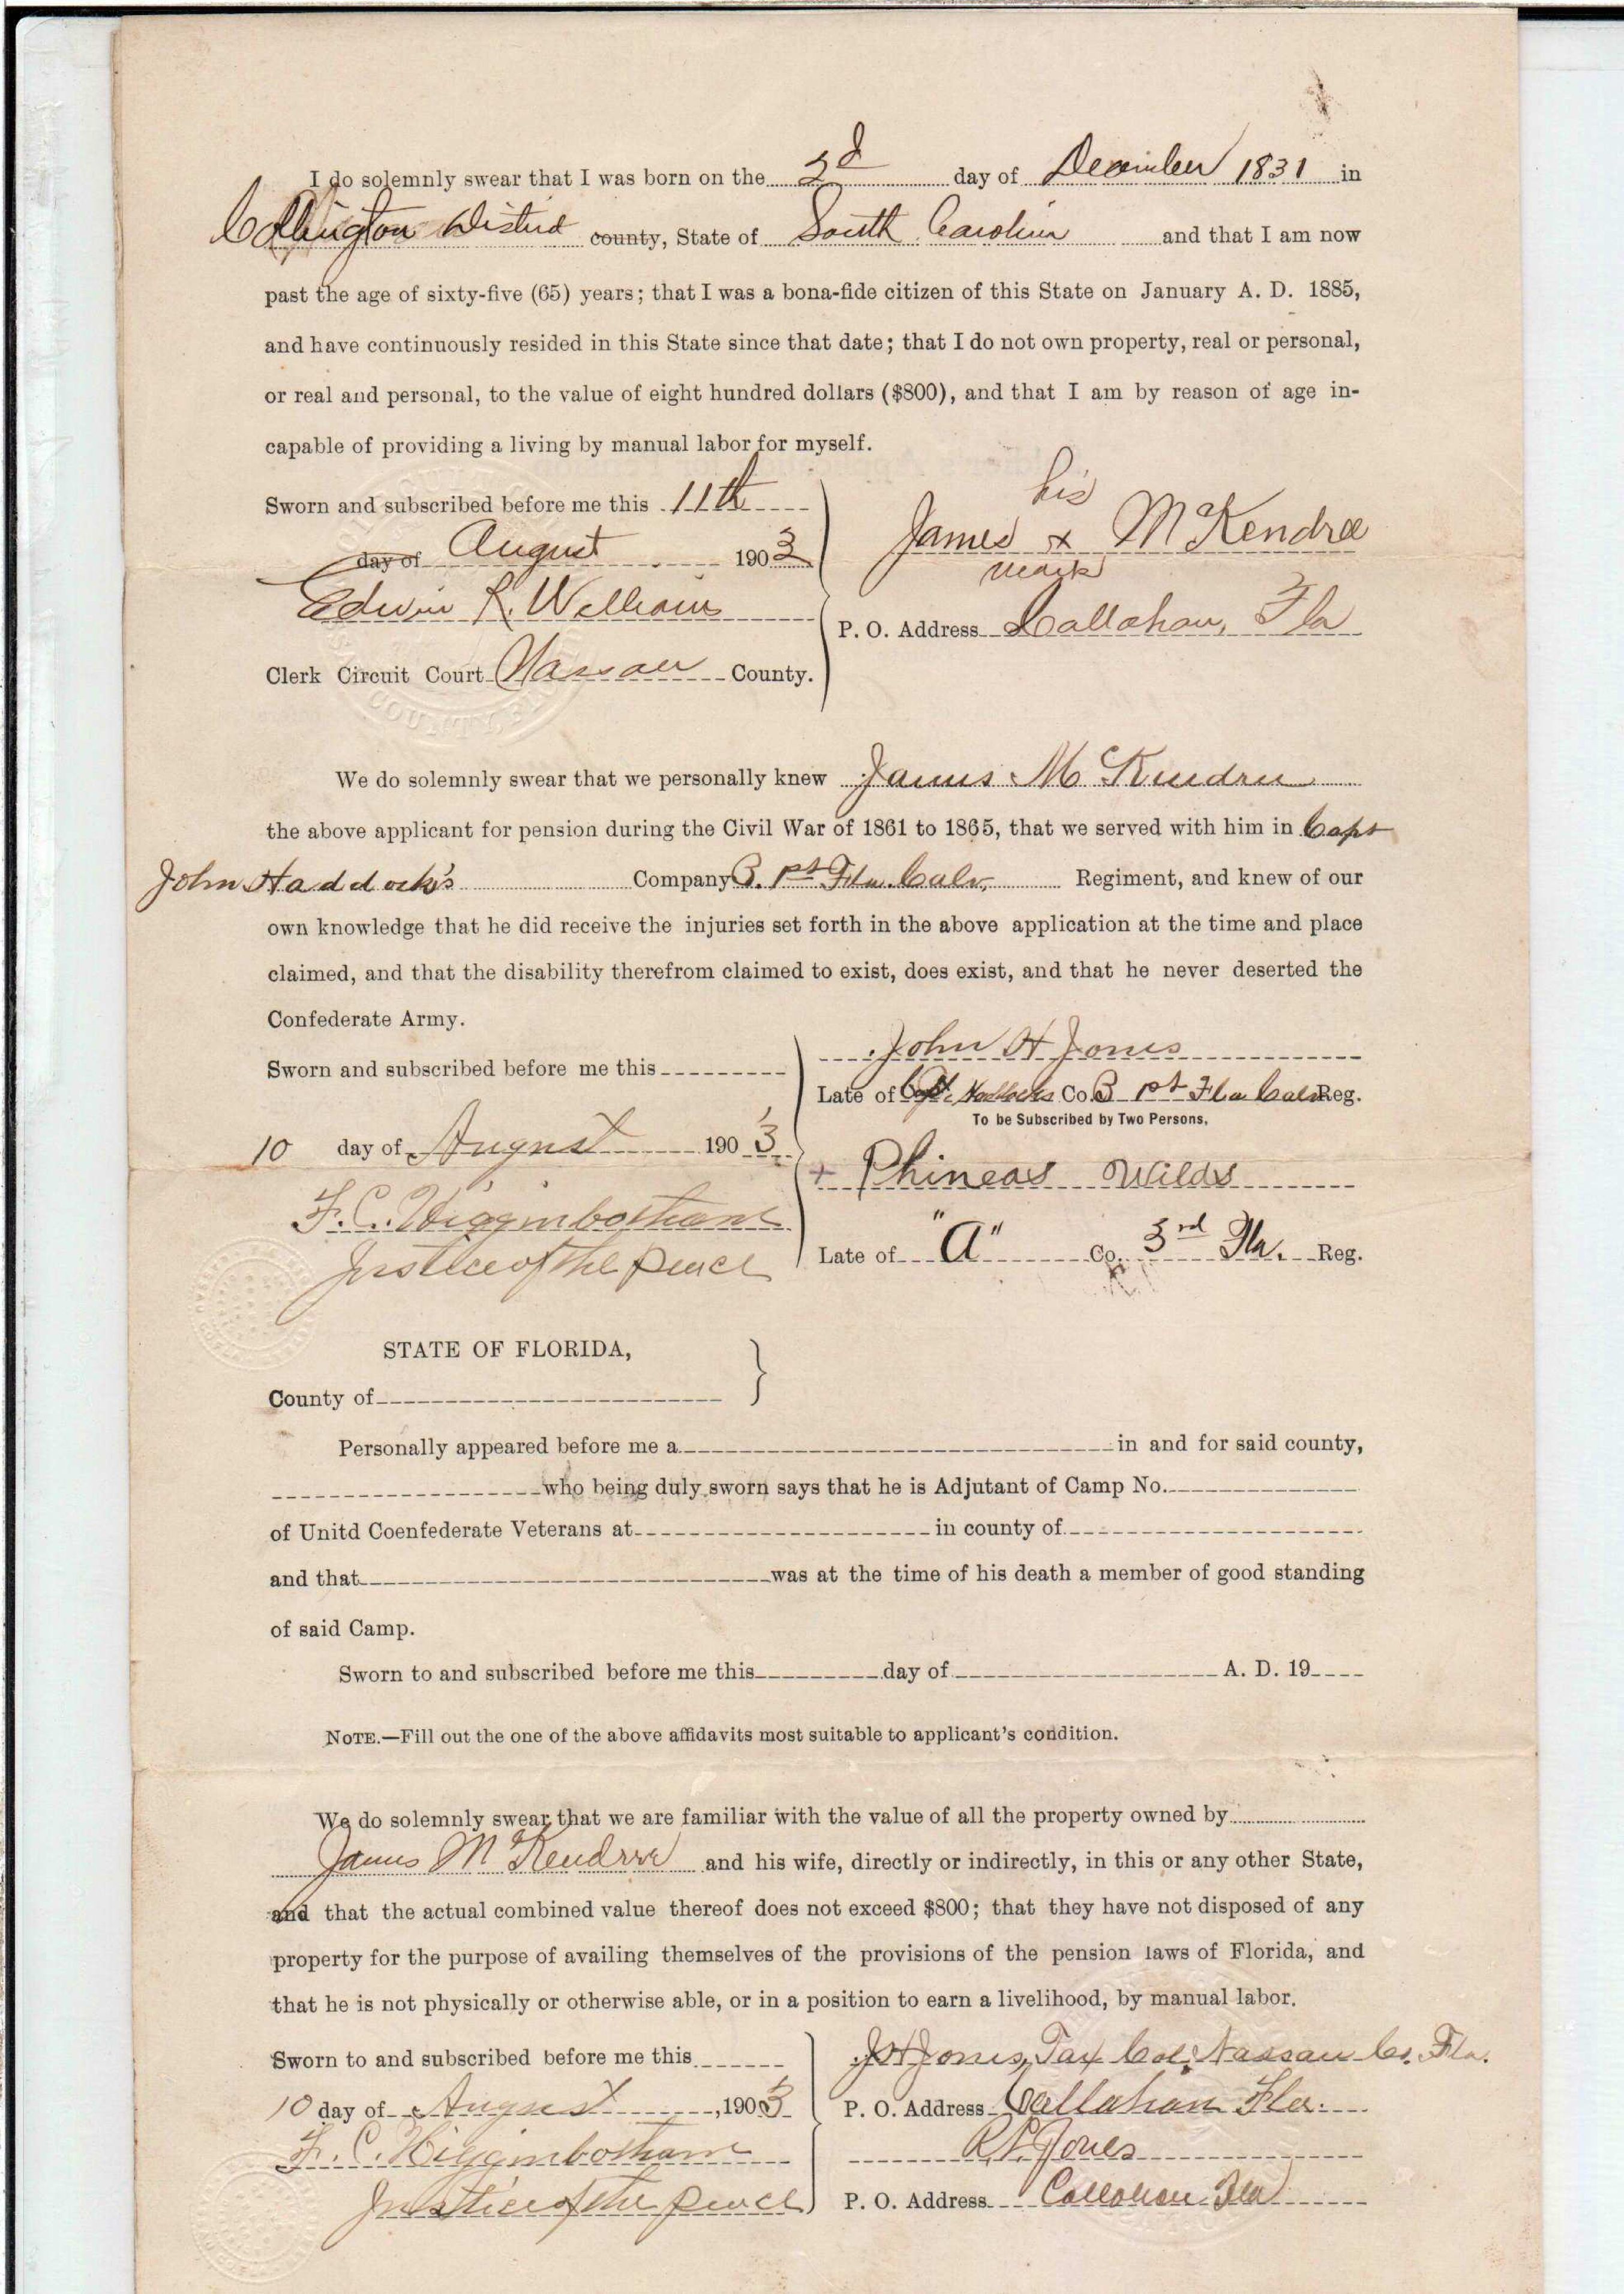 I do solemnly swear that I was born on the 2d day of December 1831 in
District county, State of South Carolina and that I am now
past the age of sixty-five (65) years; that I was a bona-fide citizen of this State on January A. D. 1885,
and have continuously resided in this State since that date; that I do not own property, real or personal,
or real and personal, to the value of eight hundred dollars ($800), and that I am by reason of age in-
capable of providing a living by manual labor for myself.
Sworn and subscribed before me this 11th
day of August 1903
Edwin R. Williams
Clerk Circuit Court Nassau County.
his
James x McKendree
mark
P. O. Address Callahan, Fla
We do solemnly swear that we personally knew James McKendree
the above applicant for pension during the Civil War of 1861 to 1865, that we served with him in Capt
John Haddock's Company B. 1st Fla. Calv. Regiment, and knew of our
own knowledge that he did receive the injuries set forth in the above application at the time and place
claimed, and that the disability therefrom claimed to exist, does exist, and that he never deserted the
Confederate Army.
Sworn and subscribed before me this
10 day of August 1903
F. C. Higginbotham
Justice of the peace
John H Jones
Late of Capt. Haddocks Co. B 1st Fla Calv Reg.
To be Subscribed by Two Persons,
+ Phineas Wilds
Late of "A" Co. 3rd Fla. Reg.
STATE OF FLORIDA,
County of
Personally appeared before me a in and for said county,
who being duly sworn says that he is Adjutant of Camp No.
of Unitd Coenfederate Veterans at in county of
and that was at the time of his death a member of good standing
of said Camp.
Sworn to and subscribed before me this day of A. D. 19
NOTE.—Fill out the one of the above affidavits most suitable to applicant's condition.
We do solemnly swear that we are familiar with the value of all the property owned by
James McKendree and his wife, directly or indirectly, in this or any other State,
and that the actual combined value thereof does not exceed $800; that they have not disposed of any
property for the purpose of availing themselves of the provisions of the pension laws of Florida, and
that he is not physically or otherwise able, or in a position to earn a livelihood, by manual labor.
Sworn to and subscribed before me this
10 day of August, 1903
F. C. Higginbotham
Justice of the peace
J H Jones, Tax Col. Nassau Co. Fla.
P. O. Address Callahan Fla.
Jones
P. O. Address Callahan Fla